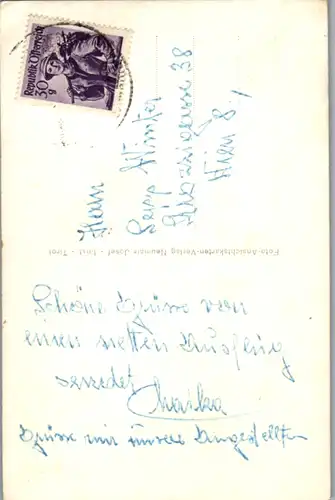 Republik Österreich
30 g
Herrn
Sepp Winter
38
Wien 8,
Foto-Ansichtskarten-Verlag Neumair Josef - Imst - Tirol
Schöne Grüße von
einen netten Ausflug
sendet
Grüße mir unsere Angestellten